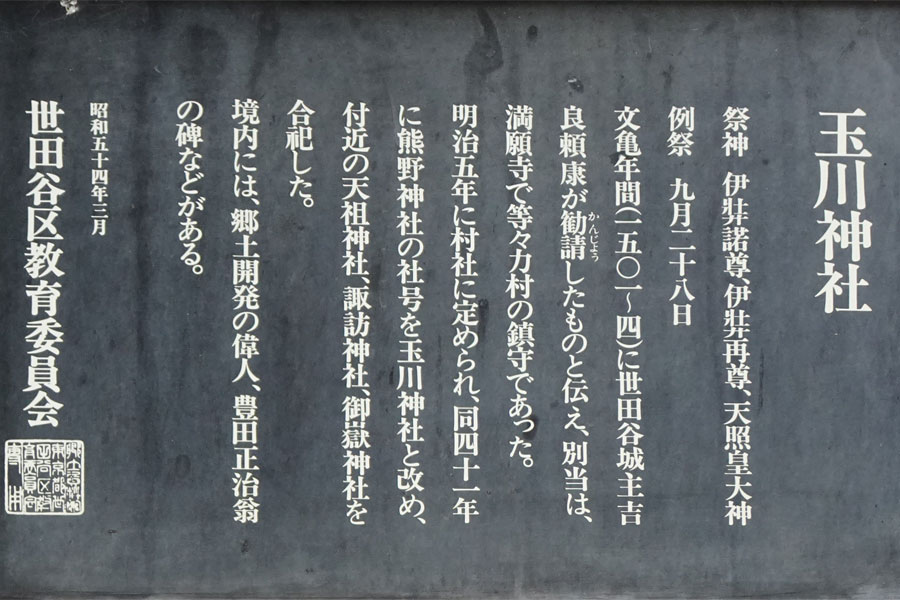 玉川神社
祭神 伊弉諾尊、伊弉冉尊、天照皇大神
例祭 九月二十八日
文亀年間(一五〇一〜四)に世田谷城主吉
良頼康が勧請したものと伝え、別当は、
かんじょう
満願寺で等々力村の鎮守であった。
明治五年に村社に定められ、同四十一年
に熊野神社の社号を玉川神社と改め、
付近の天祖神社、諏訪神社、御嶽神社を
合祀した。
境内には、郷土開発の偉人、豊田正治翁
の碑などがある。
昭和五十四年三月
世田谷区教育委員会